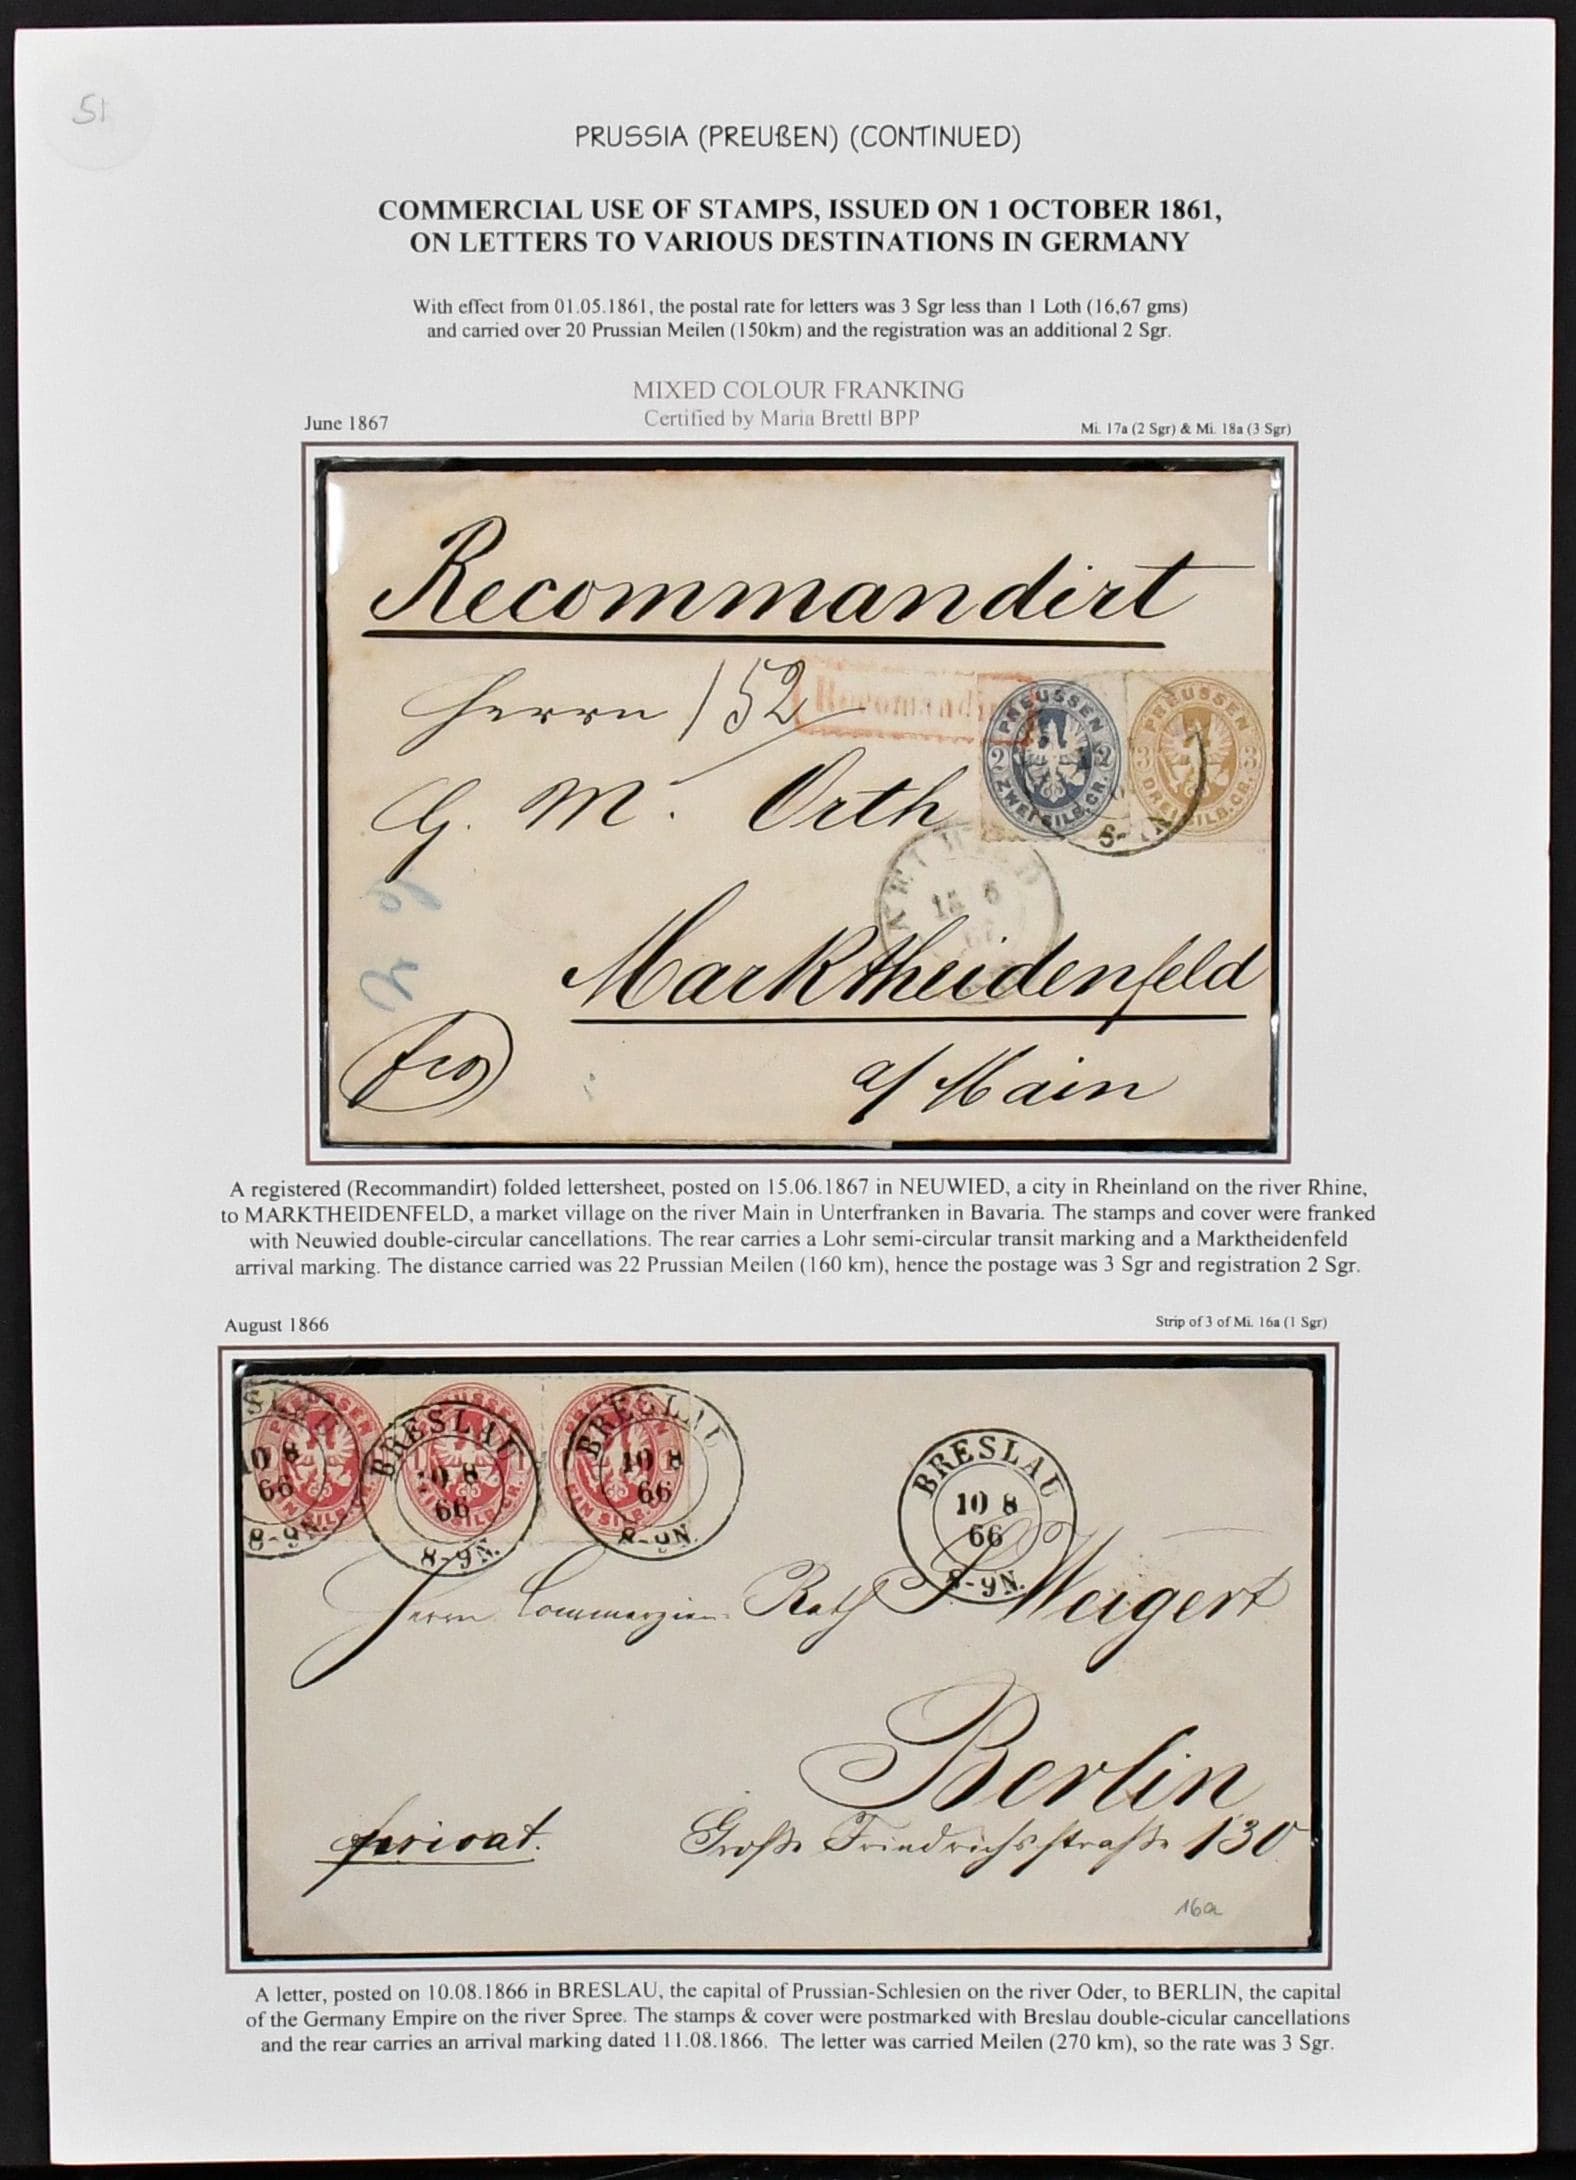 51
PRUSSIA (PREUßEN) (CONTINUED)
COMMERCIAL USE OF STAMPS, ISSUED ON 1 OCTOBER 1861,
ON LETTERS TO VARIOUS DESTINATIONS IN GERMANY
With effect from 01.05.1861, the postal rate for letters was 3 Sgr less than 1 Loth (16,67 gms)
and carried over 20 Prussian Meilen (150km) and the registration was an additional 2 Sgr.
MIXED COLOUR FRANKING
Certified by Maria Brettl BPP
June 1867
Mi. 17a (2 Sgr) & Mi. 18a (3 Sgr)
Recommandirt
Herrn 152
Recomandirt
PREUSSEN 2 2 ZWEI SILB.GR.
PREUSSEN 3 3 DREI SILB.GR.
G. M. Orth
NEUWIED
15 6
67
Marktheidenfeld
a/Main
fco
A registered (Recommandirt) folded lettersheet, posted on 15.06.1867 in NEUWIED, a city in Rheinland on the river Rhine,
to MARKTHEIDENFELD, a market village on the river Main in Unterfranken in Bavaria. The stamps and cover were franked
with Neuwied double-circular cancellations. The rear carries a Lohr semi-circular transit marking and a Marktheidenfeld
arrival marking. The distance carried was 22 Prussian Meilen (160 km), hence the postage was 3 Sgr and registration 2 Sgr.
August 1866
Strip of 3 of Mi. 16a (1 Sgr)
PREUSSEN EIN SILB.GR.
PREUSSEN 1 1 EIN SILB.GR.
PREUSSEN EIN SILB.GR.
BRESLAU 10 8 66 8-9N.
BRESLAU 10 8 66 8-9N.
BRESLAU 10 8 66 8-9N.
BRESLAU 10 8 66 8-9N.
Herrn Commerzien-Rath S. Weigert
Berlin
privat.
Große Friedrichsstraße 130
16a
A letter, posted on 10.08.1866 in BRESLAU, the capital of Prussian-Schlesien on the river Oder, to BERLIN, the capital
of the Germany Empire on the river Spree. The stamps & cover were postmarked with Breslau double-cicular cancellations
and the rear carries an arrival marking dated 11.08.1866. The letter was carried Meilen (270 km), so the rate was 3 Sgr.